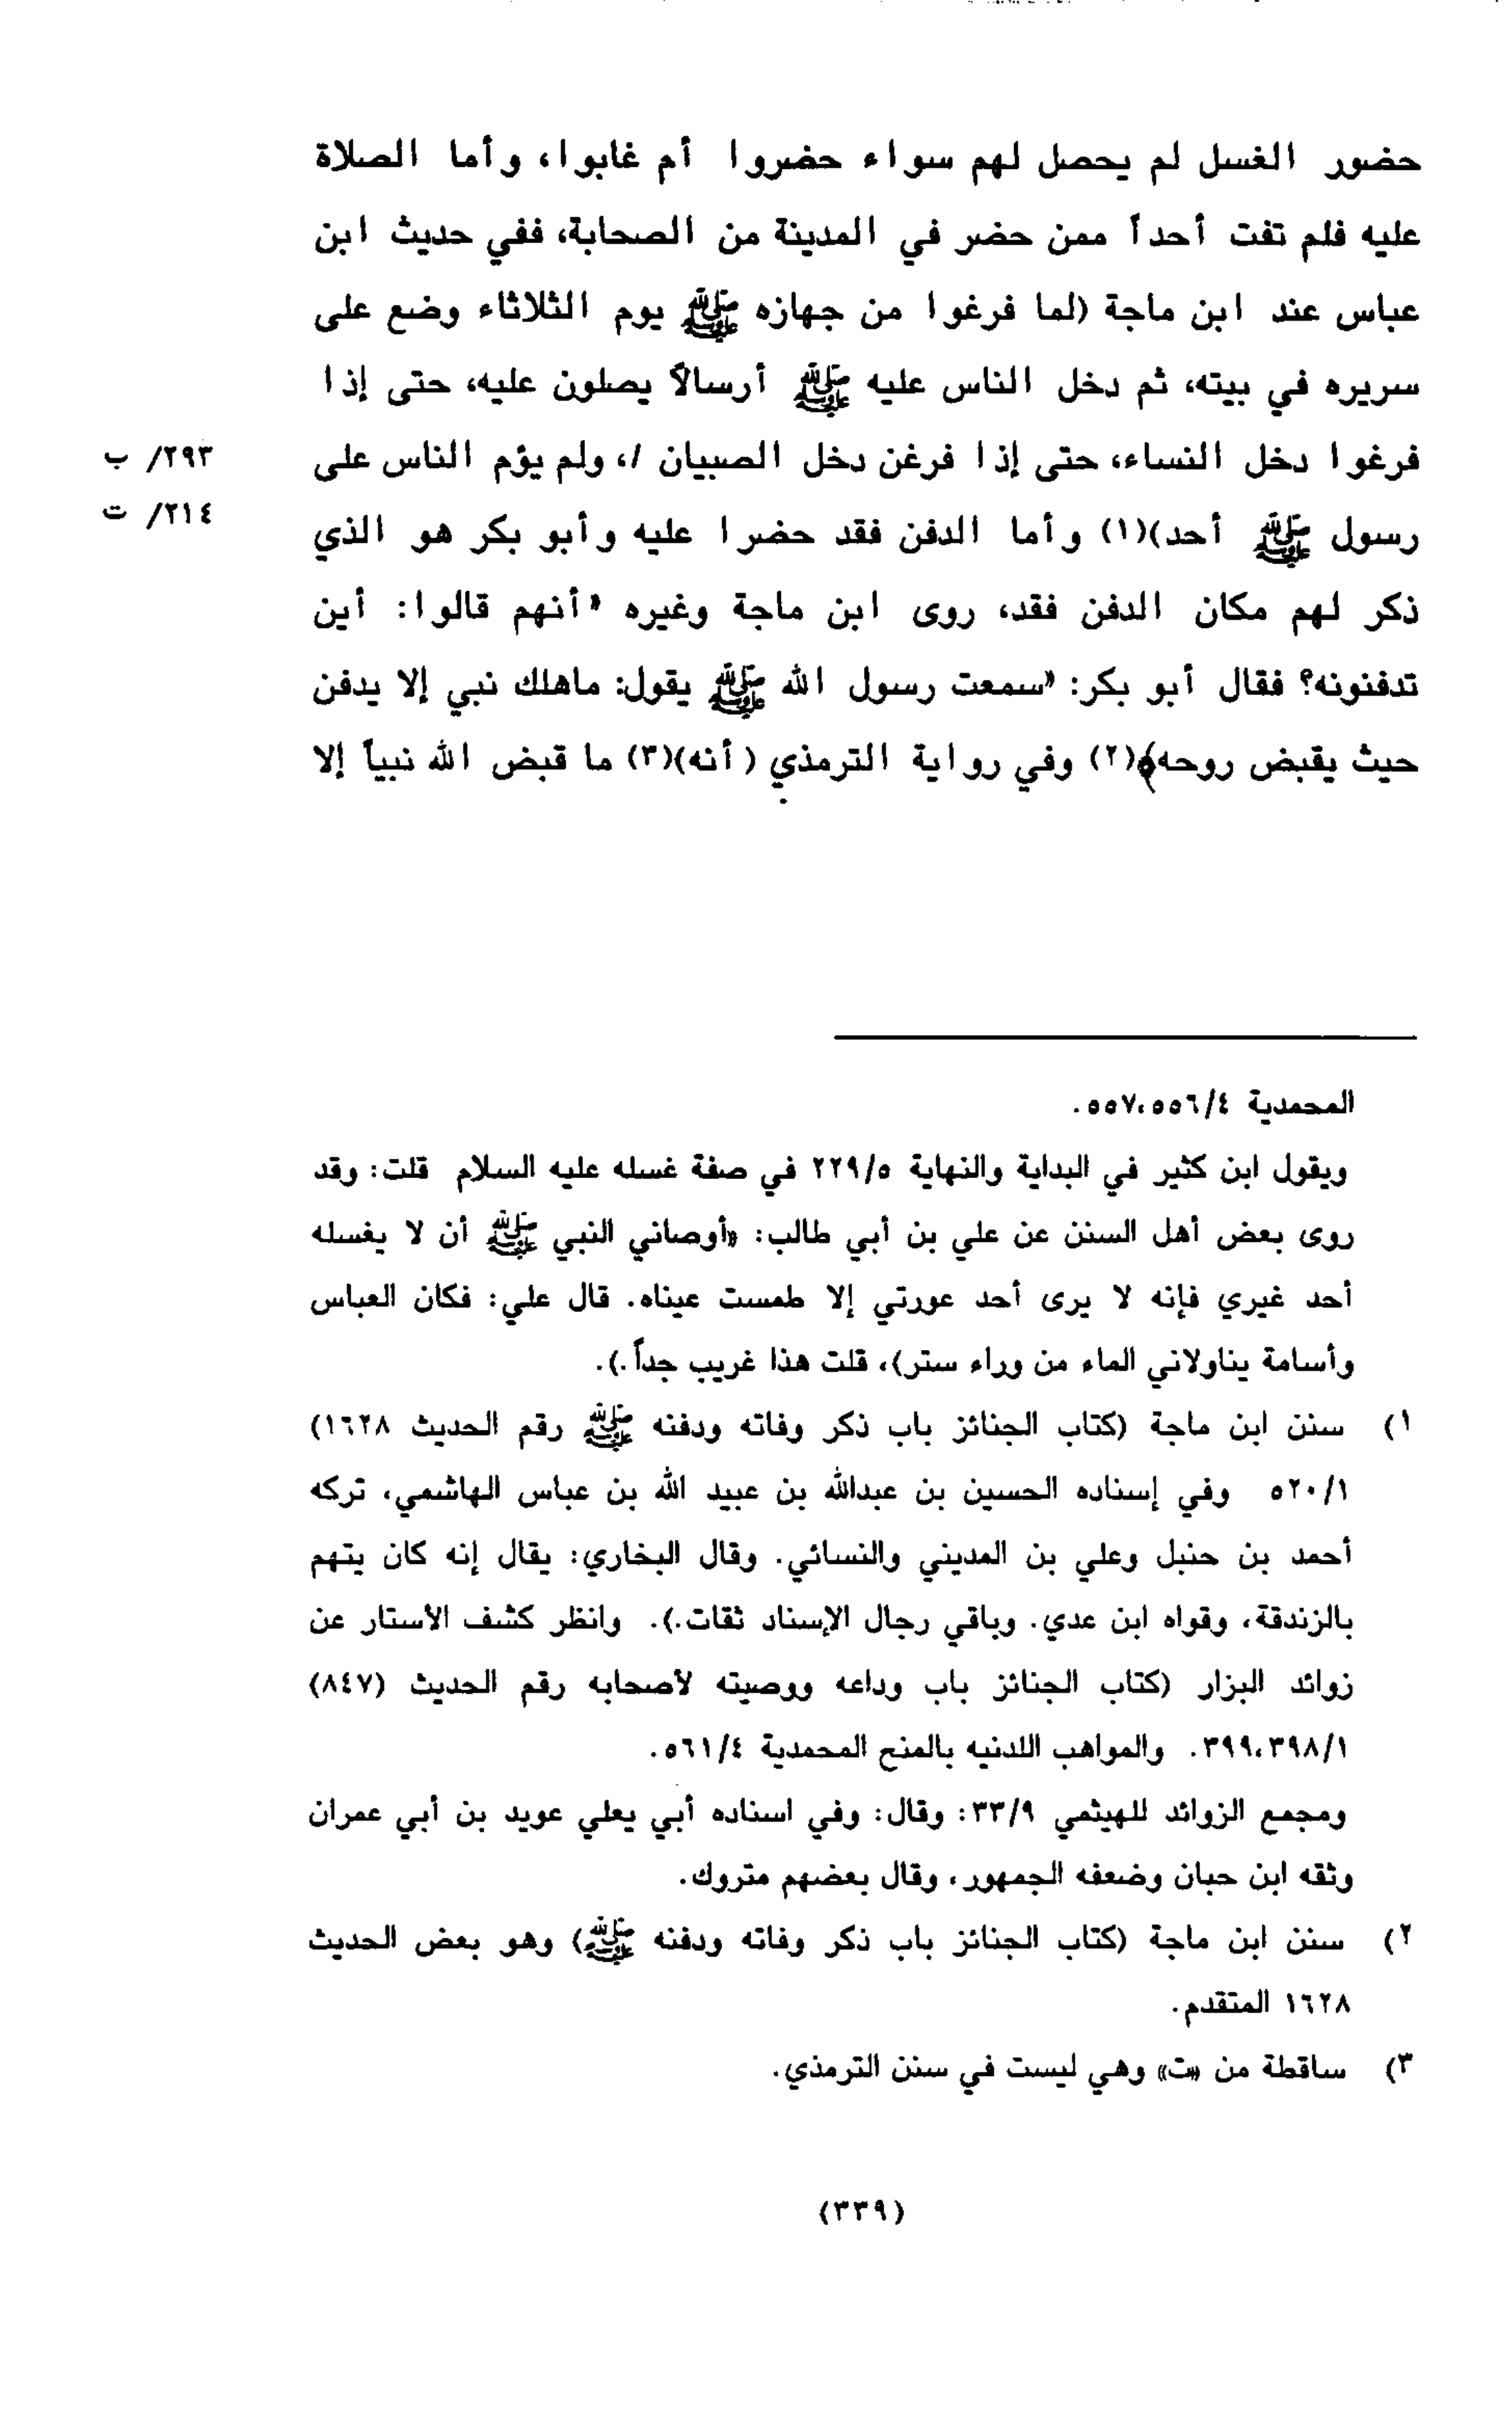 حضور الغسل لم يحصل لهم سواء حضروا أم غابوا، وأما الصلاة
عليه فلم تفت أحداً ممن حضر في المدينة من الصحابة، ففي حديث ابن
عباس عند ابن ماجة (لما فرغوا من جهازه ﷺ يوم الثلاثاء وضع على
سريره في بيته، ثم دخل الناس عليه ﷺ أرسالاً يصلون عليه، حتى إذا
فرغوا دخل النساء، حتى إذا فرغن دخل الصبيان /، ولم يؤم الناس على
٢٩٣/ ب
رسول ﷺ أحد)(١) وأما الدفن فقد حضرا عليه وأبو بكر هو الذي
٢١٤/ ت
ذكر لهم مكان الدفن فقد، روى ابن ماجة وغيره «أنهم قالوا: أين
تدفنونه؟ فقال أبو بكر: «سمعت رسول الله ﷺ يقول: ماهلك نبي إلا يدفن
حيث يقبض روحه﴾(٢) وفي رواية الترمذي (أنه)(٣) ما قبض الله نبياً إلا
المحمدية ٥٥٧،٥٥٦/٤.
ويقول ابن كثير في البداية والنهاية ٢٢٩/٥ في صفة غسله عليه السلام قلت: وقد
روى بعض أهل السنن عن علي بن أبي طالب: «أوصاني النبي ﷺ أن لا يغسله
أحد غيري فإنه لا يرى أحد عورتي إلا طمست عيناه. قال علي: فكان العباس
وأسامة يناولاني الماء من وراء ستر)، قلت هذا غريب جداً.).
١) سنن ابن ماجة (كتاب الجنائز باب ذكر وفاته ودفنه ﷺ رقم الحديث ١٦٢٨)
٥٢٠/١ وفي إسناده الحسين بن عبدالله بن عبيد الله بن عباس الهاشمي، تركه
أحمد بن حنبل وعلي بن المديني والنسائي. وقال البخاري: يقال إنه كان يتهم
بالزندقة، وقواه ابن عدي. وباقي رجال الإسناد ثقات.). وانظر كشف الأستار عن
زوائد البزار (كتاب الجنائز باب وداعه ووصيته لأصحابه رقم الحديث (٨٤٧)
٣٩٩،٣٩٨/١. والمواهب اللدنيه بالمنح المحمدية ٥٦١/٤.
ومجمع الزوائد للهيثمي ٣٣/٩: وقال: وفي اسناده أبي يعلي عويد بن أبي عمران
وثقه ابن حبان وضعفه الجمهور، وقال بعضهم متروك.
٢) سنن ابن ماجة (كتاب الجنائز باب ذكر وفاته ودفنه ﷺ) وهو بعض الحديث
١٦٢٨ المتقدم.
٣) ساقطة من «ت» وهي ليست في سنن الترمذي.
(٣٣٩)